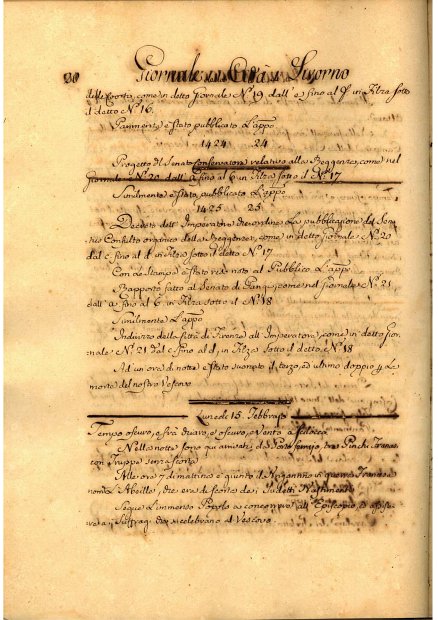 Giornale Città Livorno
delle Corti, come in detto Giornale N.º 19 dall' e fino al in Filza sotto
il detto N.º 16.
Parimente è stato pubblicato L'appo
1424 24
Progetto Il Senato Conservatore relativo alla Reggenza, come nel
Giornale N.º 20 dall' fino al 6 in Filza sotto il N.º 17
Similmente è stato pubblicato L'appo
1425 25
Decreto dell' Imperatore La pubblicazione del
Consulto organico della Reggenza, come in detto Giornale N.º 20
dal c fino al d in Filza sotto il detto N.º 17
Con è stato reso noto al Pubblico L'appo
Rapporto fatto al Senato di come nel Giornale N.º 21,
dall' a fino al 6 in Filza sotto il N.º 18
Similmente L'appo
Indirizzo della Città di Firenze all' Imperatore, come in detto Gior
nale N.º 21 dal c fino al d, in Filza sotto il detto N.º 18
Ad un ora di notte è stato suonato il terzo, ed ultimo doppio p La
morte del nostro Vescovo
Lunedì 15. Febbrajo
Tempo oscuro, e oscuro, e Vento a
Nella notte sono qui arrivati da tre Pinchi
con Truppa senza scorta
Alle ore 7 di mattina è giunto il Brigantino in guerra Francese
nomato L'Abeille,
Segue L'immenso Popolo a concorrere all' Episcopio,
Suffragi che si celebrano al Vescovo